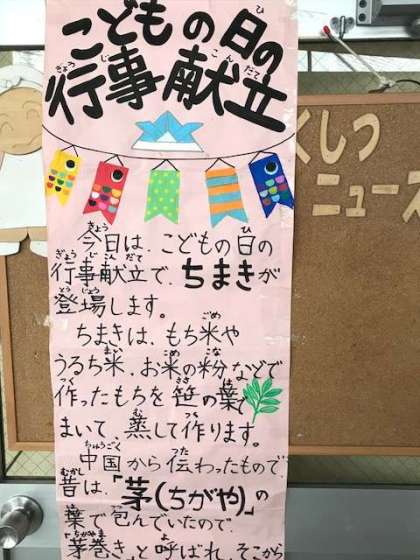 こどもの日の
行事献立
今日は、こどもの日の
行事献立で、ちまきが
登場します。
ちまきは、もち米や
うるち米、お米の粉などで
作ったもちを笹の葉で
まいて、蒸して作ります。
中国から伝わったもので、
昔は、「茅(ちがや)」の
葉で包んでいたので、
茅巻き、と呼ばれ、そこから
くしつ
ニュース